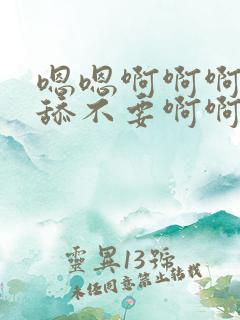 嗯嗯啊啊啊
舔不要啊啊
靈異13號
未經同意禁止轉載